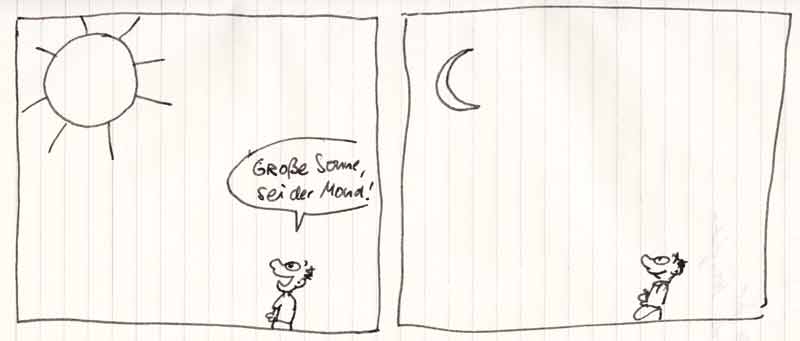 Große Sonne,
sei der Mond!